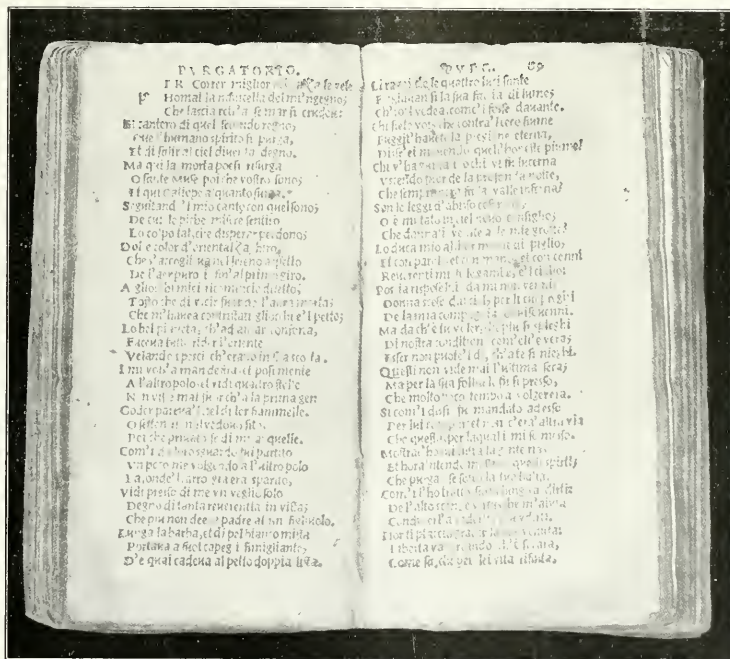 PVRGATORIO.
ER Correr miglior le vele
Homai la nauicella del mi'ngegno;
Che lascia retr'a se mar si crudele:
Et cantero di quel secondo regno,
Oue l'humano spirito si purga,
Et di salir al ciel diuenta degno.
Ma qui la morta poesi risurga
O sante Muse poi che vostro sono;
Et qui Calliope alquanto surga,
Seguitand' il mio canto con quel sono;
De cui le piche misere sentiro
Lo colpo tal, che disperar perdono;
Dolce color d'oriental zaphiro,
Che s'accoglieua nel sereno aspetto
De l'aer puro in fin' al primo giro.
A gliocchi miei ricomincio diletto;
Tosto che di fuor de l'aura morta;
Che m'hauea contristati gliocchi e'l petto;
Lo bel pianeta, ch'ad amar conforta,
Faceua tutto rider l'oriente
Velando i pesci ch'eran in sua scorta.
I mi volsi a man destra; et posi mente
A l'altro polo; et vidi quattro stelle
Non viste mai fuor ch'a la prima gente
Goder pareua'l ciel di lor fiammelle.
O settentrional vedouo sito,
Poi che priuato se di mirar quelle.
Com'i da loro sguardo fui partito
Vn poco me volgendo a l'altro polo
La, onde'l carro gia era sparito,
Vidi presso di me vn veglio solo
Degno di tanta reuerentia in vista;
Che piu non dee a padre alcun figliuolo.
Lunga la barba, et di pel bianco mista
Portaua a suoi capegli simigliante;
D'e quai cadeua al petto doppia lista.
PVRG. 69
Li raggi de le quattro luci sante
Fregiauan si la sua faccia di lume;
Ch'io'l vedea, come'l sole fosse dauante.
Chi siete voi; che contra'l cieco fiume
Fuggit'hauete la prigione eterna,
Diss'ei mouendo quell'honeste piume?
Chi v'ha guidati o chi vi fu lucerna
Vscendo fuor de la profonda notte,
Che sempre nera fa la valle inferna?
Son le leggi d'abisso cosi rotte,
O e mutato in ciel nouo consiglio;
Che dannati venite a le mie grotte?
Lo duca mio alhor mi die di piglio;
Et con parole et con mano, et con cenni
Reuerenti mi fe le gambe, e'l ciglio:
Poscia rispose lui da me non venni:
Donna scese dal ciel; per li cui preghi
De la mia compagnia costui souenni.
Ma da ch'e tu voler, che piu si spieghi
Di nostra condition, com'ell'e vera;
Esser non puote'l mio, ch'a te si nieghi.
Questi non vide mai l'ultima sera;
Ma per la sua follia le fu si presso,
Che molto poco tempo a volger era.
Si com'i dissi fu mandato ad esso
Per lui campare; et non c'era altra via
Che questa; per laqual i mi son messo.
Mostrat'ho lui tutta la gente ria;
Et hora'ntendo mostrar quegli spirti;
Che purgan se sotto la tua balia.
Com'i l'ho tratto saria lungo a dirti:
De l'alto scende virtu; che m'aiuta
Conducerlo a vederti et a udirti.
Hor ti piaccia gradir la sua venuta:
Liberta va cercando ch'e si cara,
Come sa, chi per lei vita rifiuta.